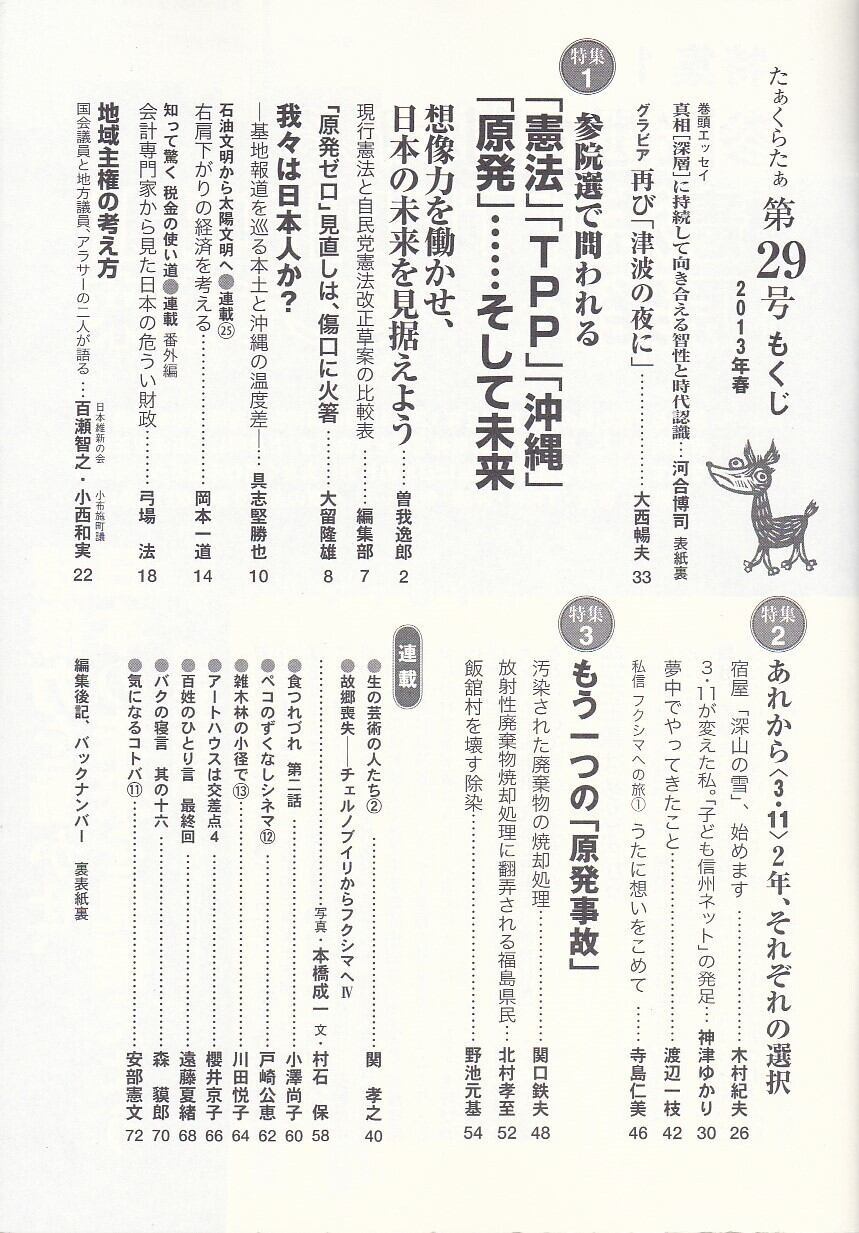 たぁくらたぁ 第29号 もくじ
2013年春
巻頭エッセイ
真相[深層]に持続して向き合える智性と時代認識…河合博司 表紙裏
グラビア 再び「津波の夜に」…………大西暢夫 33
特集1
参院選で問われる
「憲法」「TPP」「沖縄」
「原発」……そして未来
想像力を働かせ、
日本の未来を見据えよう……曽我逸郎 2
現行憲法と自民党憲法改正草案の比較表………編集部 7
「原発ゼロ」見直しは、傷口に火箸………大留隆雄 8
我々は日本人か?
―基地報道を巡る本土と沖縄の温度差―…具志堅勝也 10
石油文明から太陽文明へ●連載㉕
右肩下がりの経済を考える……………岡本一道 14
知って驚く 税金の使い道●連載 番外編
会計専門家から見た日本の危うい財政………弓場 法 18
地域主権の考え方
国会議員と地方議員、アラサーの二人が語る…日本維新の会 百瀬智之・小布施町議 小西和実 22
特集2
あれから〈3・11〉2年、それぞれの選択
宿屋「深山の雪」、始めます……………木村紀夫 26
3・11が変えた私。「子ども信州ネット」の発足…神津ゆかり 30
夢中でやってきたこと……………………渡辺一枝 42
私信 フクシマへの旅① うたに想いをこめて……寺島仁美 46
特集3
もう一つの「原発事故」
汚染された廃棄物の焼却処理……………関口鉄夫 48
放射性廃棄物焼却処理に翻弄される福島県民…北村孝至 52
飯舘村を壊す除染……………………野池元基 54
連載
●生の芸術の人たち②……………………関 孝之 40
●故郷喪失――チェルノブイリからフクシマへⅣ
……………………写真・本橋成一 文・村石 保 58
●食つれづれ 第二話……………………小澤尚子 60
●ペコのずくなしシネマ⑫……………………戸崎公恵 62
●雑木林の小径で⑬……………………川田悦子 64
●アートハウスは交差点4……………………櫻井京子 66
●百姓のひとり言 最終回……………………遠藤夏緒 68
●バクの寝言 其の十六……………………森 貘郎 70
●気になるコトバ⑪……………………安部憲文 72
編集後記、バックナンバー 裏表紙裏